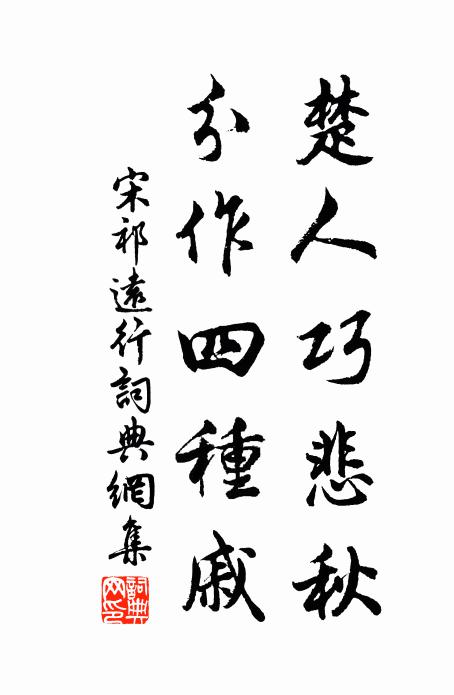 楚人巧悲秋
分作四種戚
宋祁遠行詞典網集
詞典網印